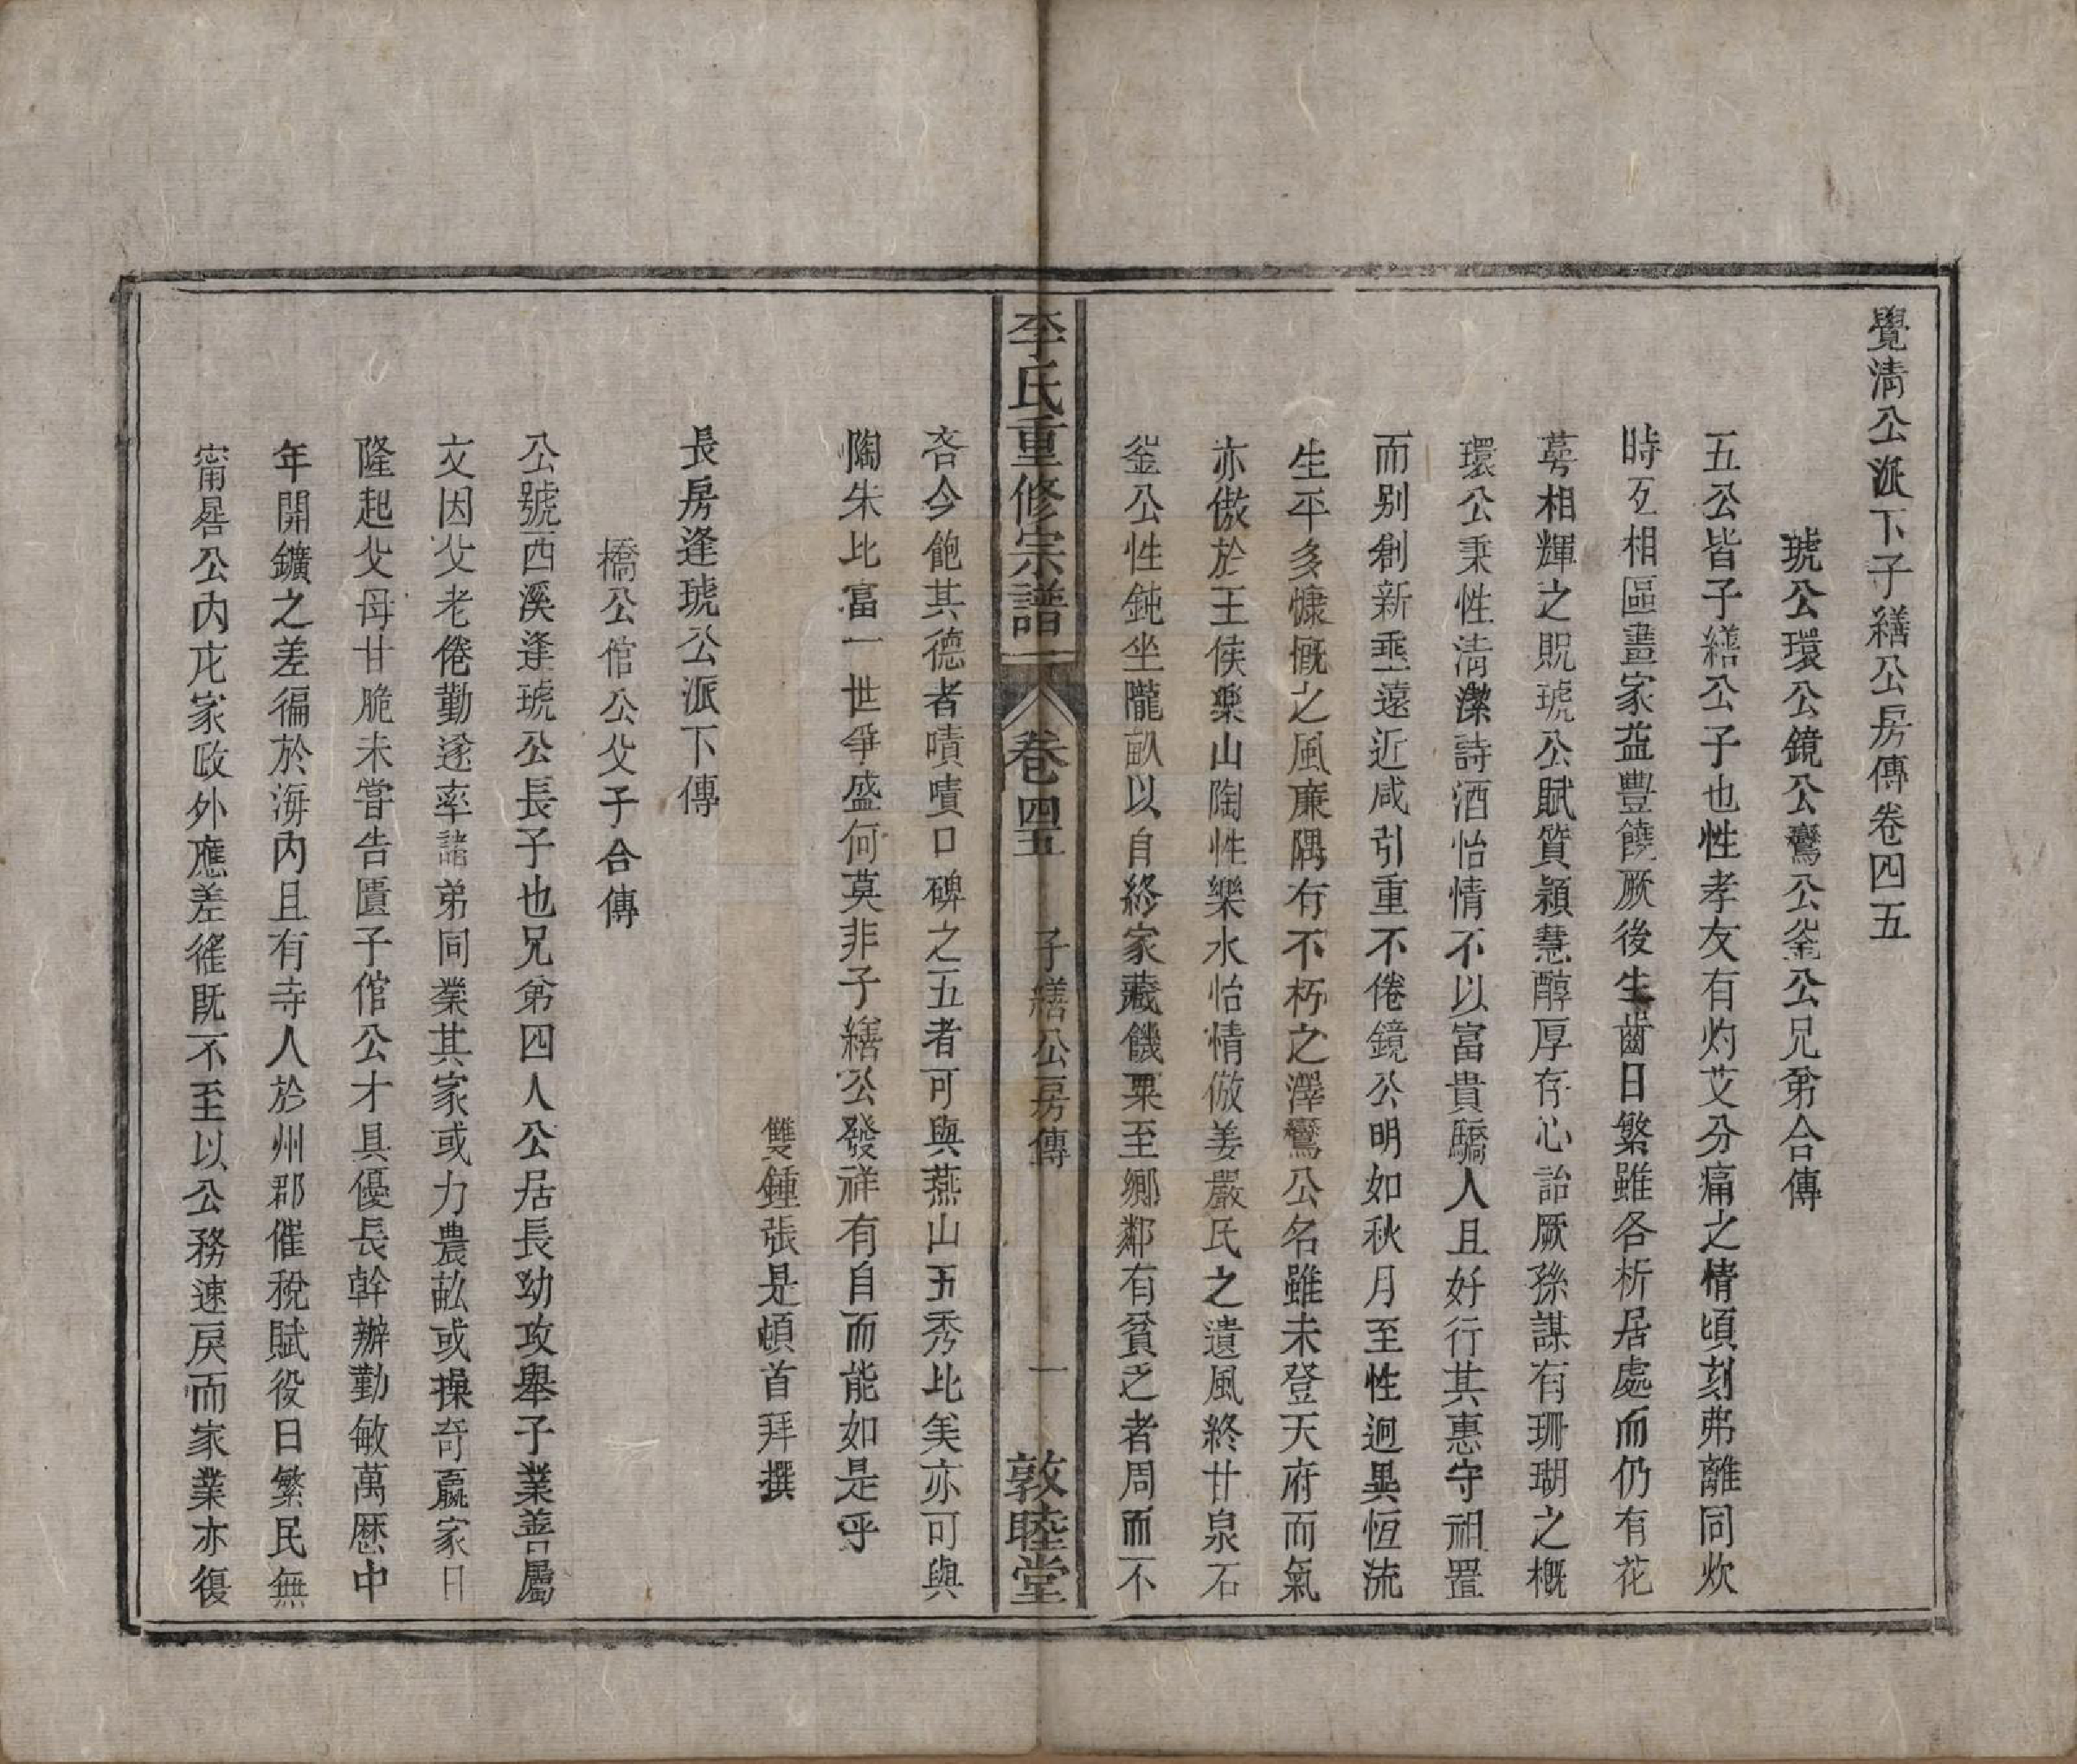 覺清公派下子繕公房傳卷四五
琥公環公鏡公鸞公釜公兄弟合傳
五公皆子繕公子也性孝友有灼艾分痛之情頃刻弗離同炊
時互相區畫家益豐饒厥後生齒日繁雖各析居處而仍有花
萼相輝之貺琥公賦質穎慧醇厚存心詒厥孫謀有珊瑚之概
環公秉性清潔詩酒怡情不以富貴驕人且好行其惠守祖置
而别創新垂遠近咸引重不倦鏡公明如秋月至性迥異恆流
生平多慷慨之風廉隅有不朽之澤鸞公名雖未登天府而氣
亦傲於王侯樂山陶性樂水怡情倣姜嚴氏之遺風終甘泉石
釜公性鈍坐隴畝以自終家藏餽粟至鄉鄰有貧乏者周而不
李氏重修宗譜 卷四五 子繕公房傳 一 敦睦堂
吝今飽其德者嘖嘖口碑之五者可與燕山五秀比美亦可與
陶朱比富一世爭盛何莫非子繕公發祥有自而能如是乎
雙鍾張是頓首拜撰
長房逢琥公派下傳
橋公倌公父子合傳
公號西溪逢琥公長子也兄弟四人公居長幼攻舉子業善屬
文因父老倦勤遂率諸弟同業其家或力農畝或操奇贏家日
隆起父母甘脆未嘗告匱子倌公才具優長幹辦勤敏萬歷中
年開鑛之差徧於海内且有寺人於州郡催稅賦役日繁民無
甯晷公内庀家政外應差徭既不至以公務速戾而家業亦復